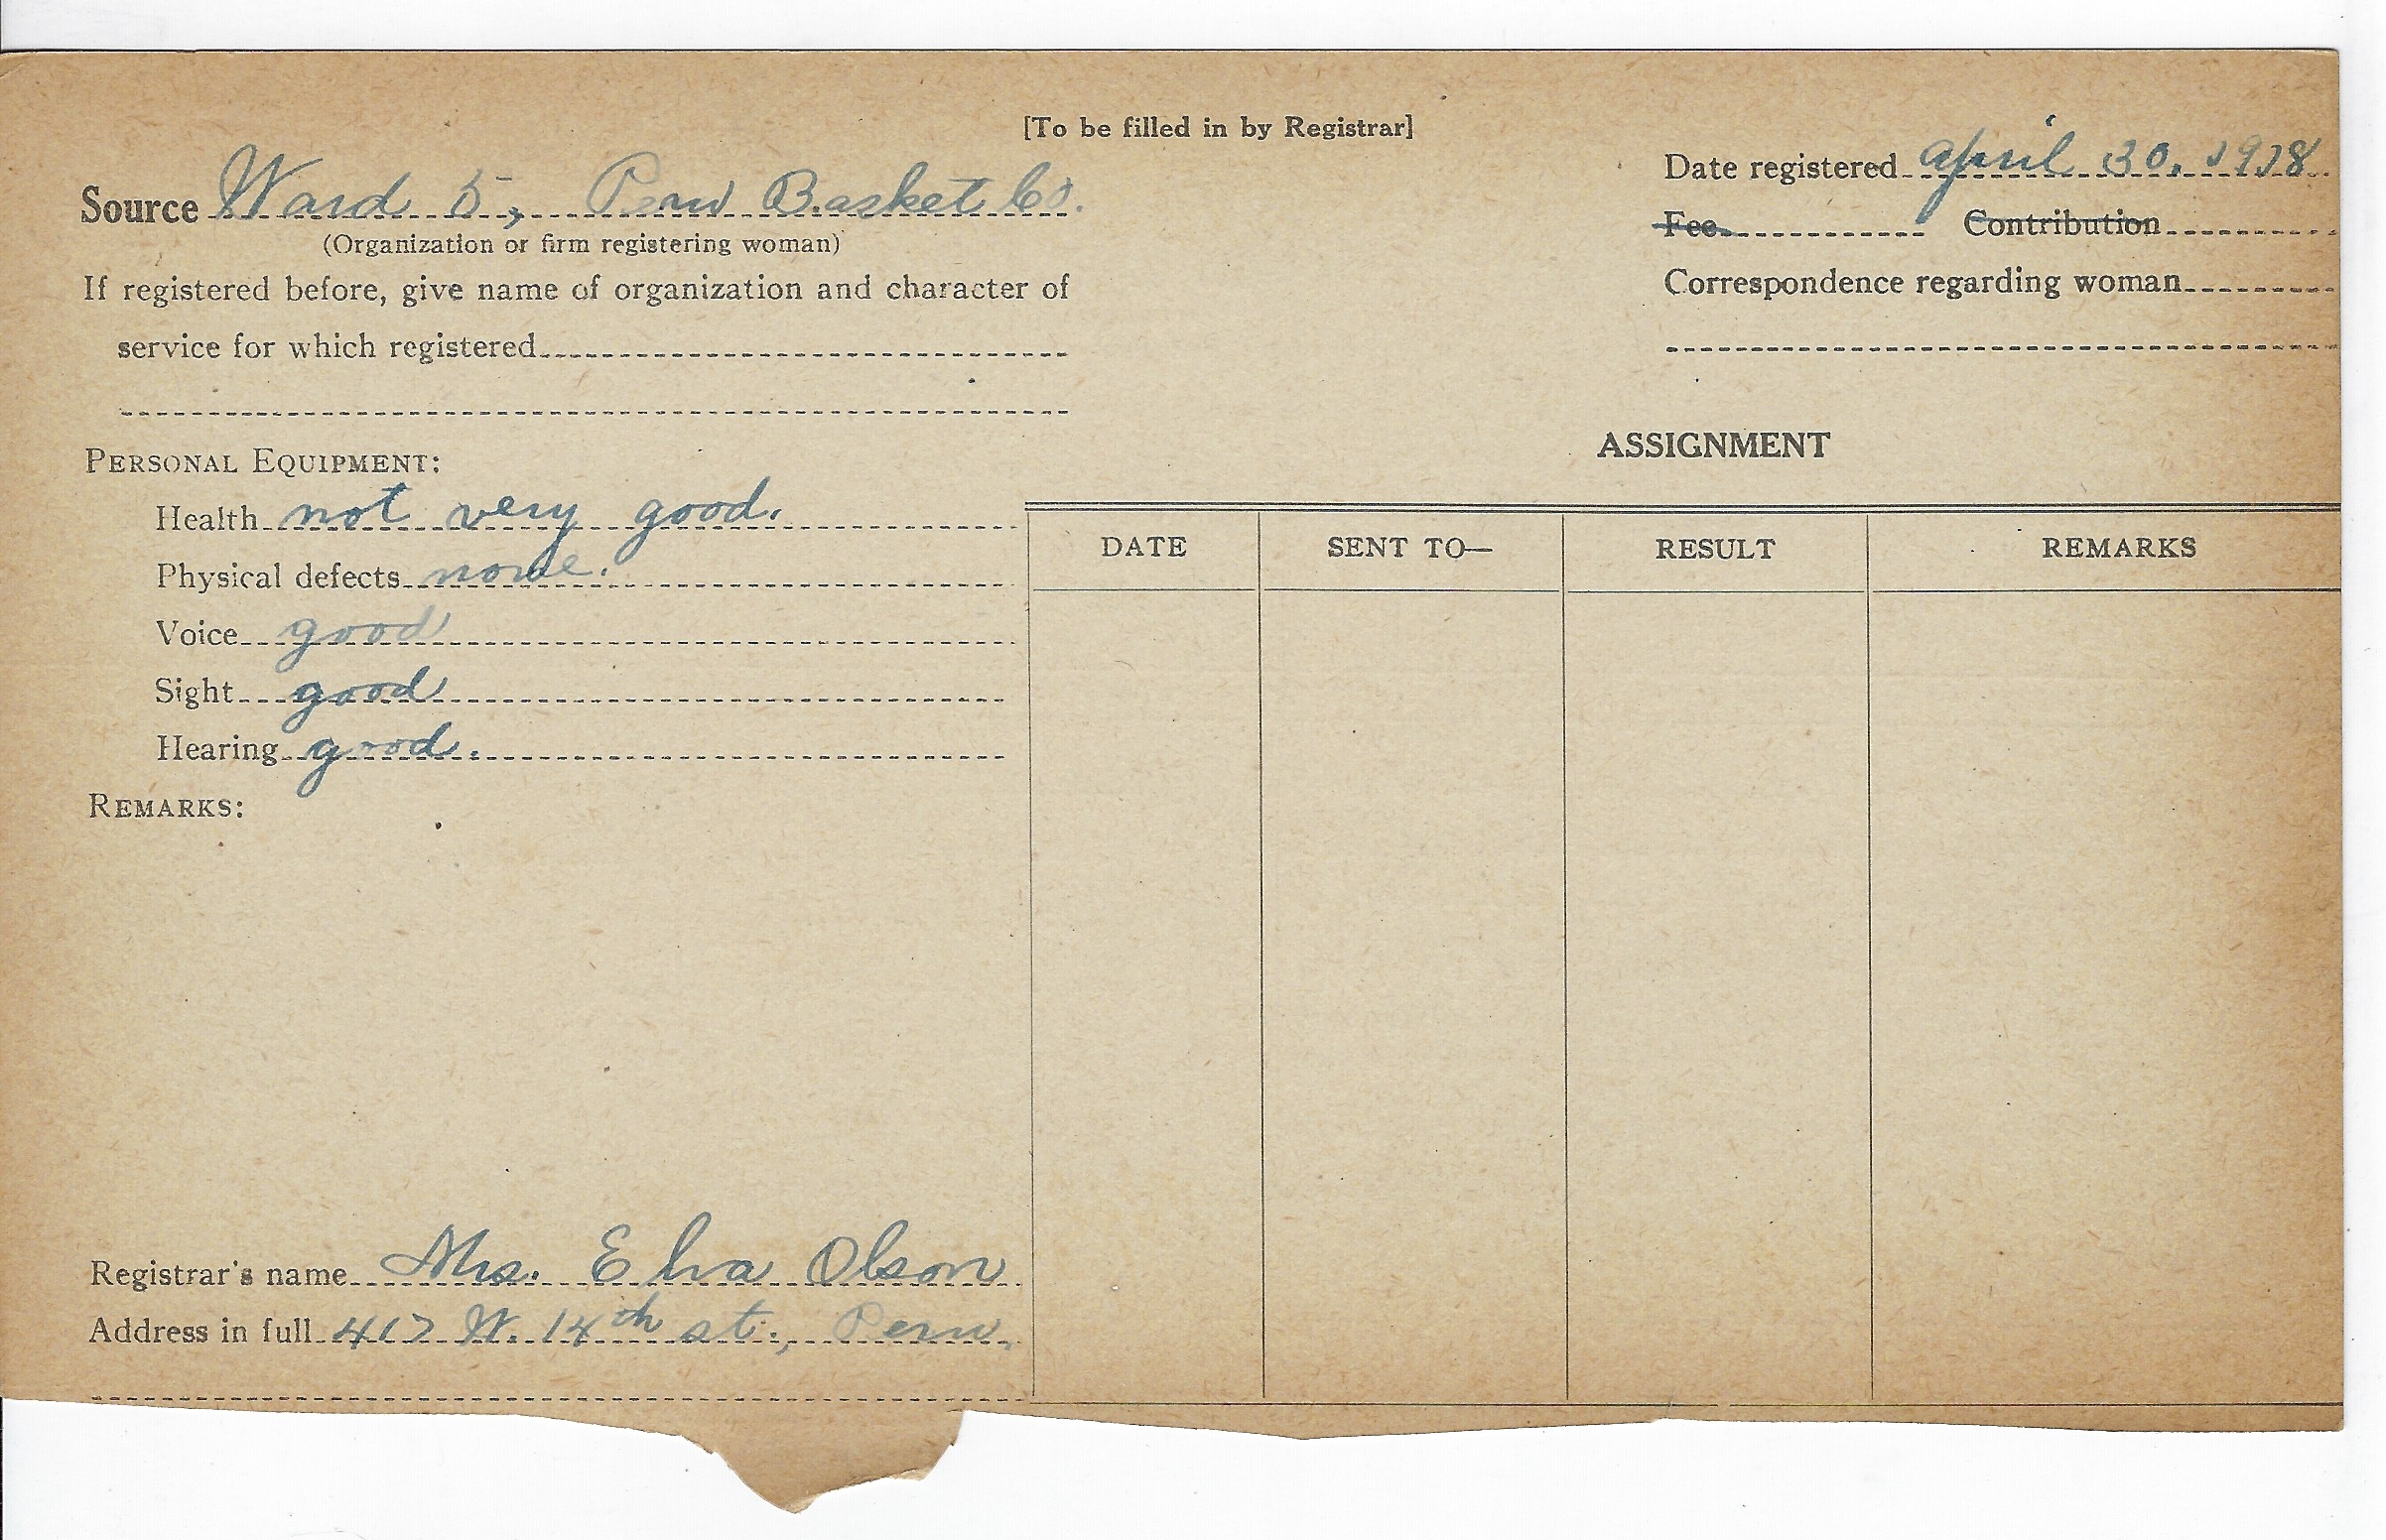 [To be filled in by Registrar]
Source Ward 5, Peru Basket Co.
(Organization or firm registering woman)
If registered before, give name of organization and character of
service for which registered
Date registered April 30, 1918
Fee Contribution
Correspondence regarding woman
PERSONAL EQUIPMENT:
Health not very good.
Physical defects none.
Voice good
Sight good
Hearing good.
REMARKS:
ASSIGNMENT
DATE SENT TO— RESULT REMARKS
Registrar's name Mrs. Elva Olson
Address in full 417 W. 14th st., Peru,